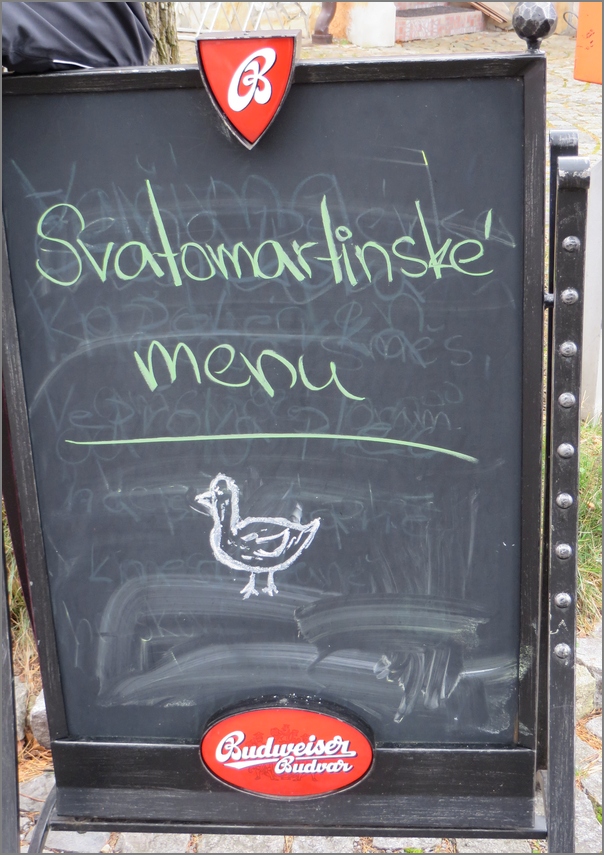 B
Svatomartinské
menu
Budweiser
Budvar